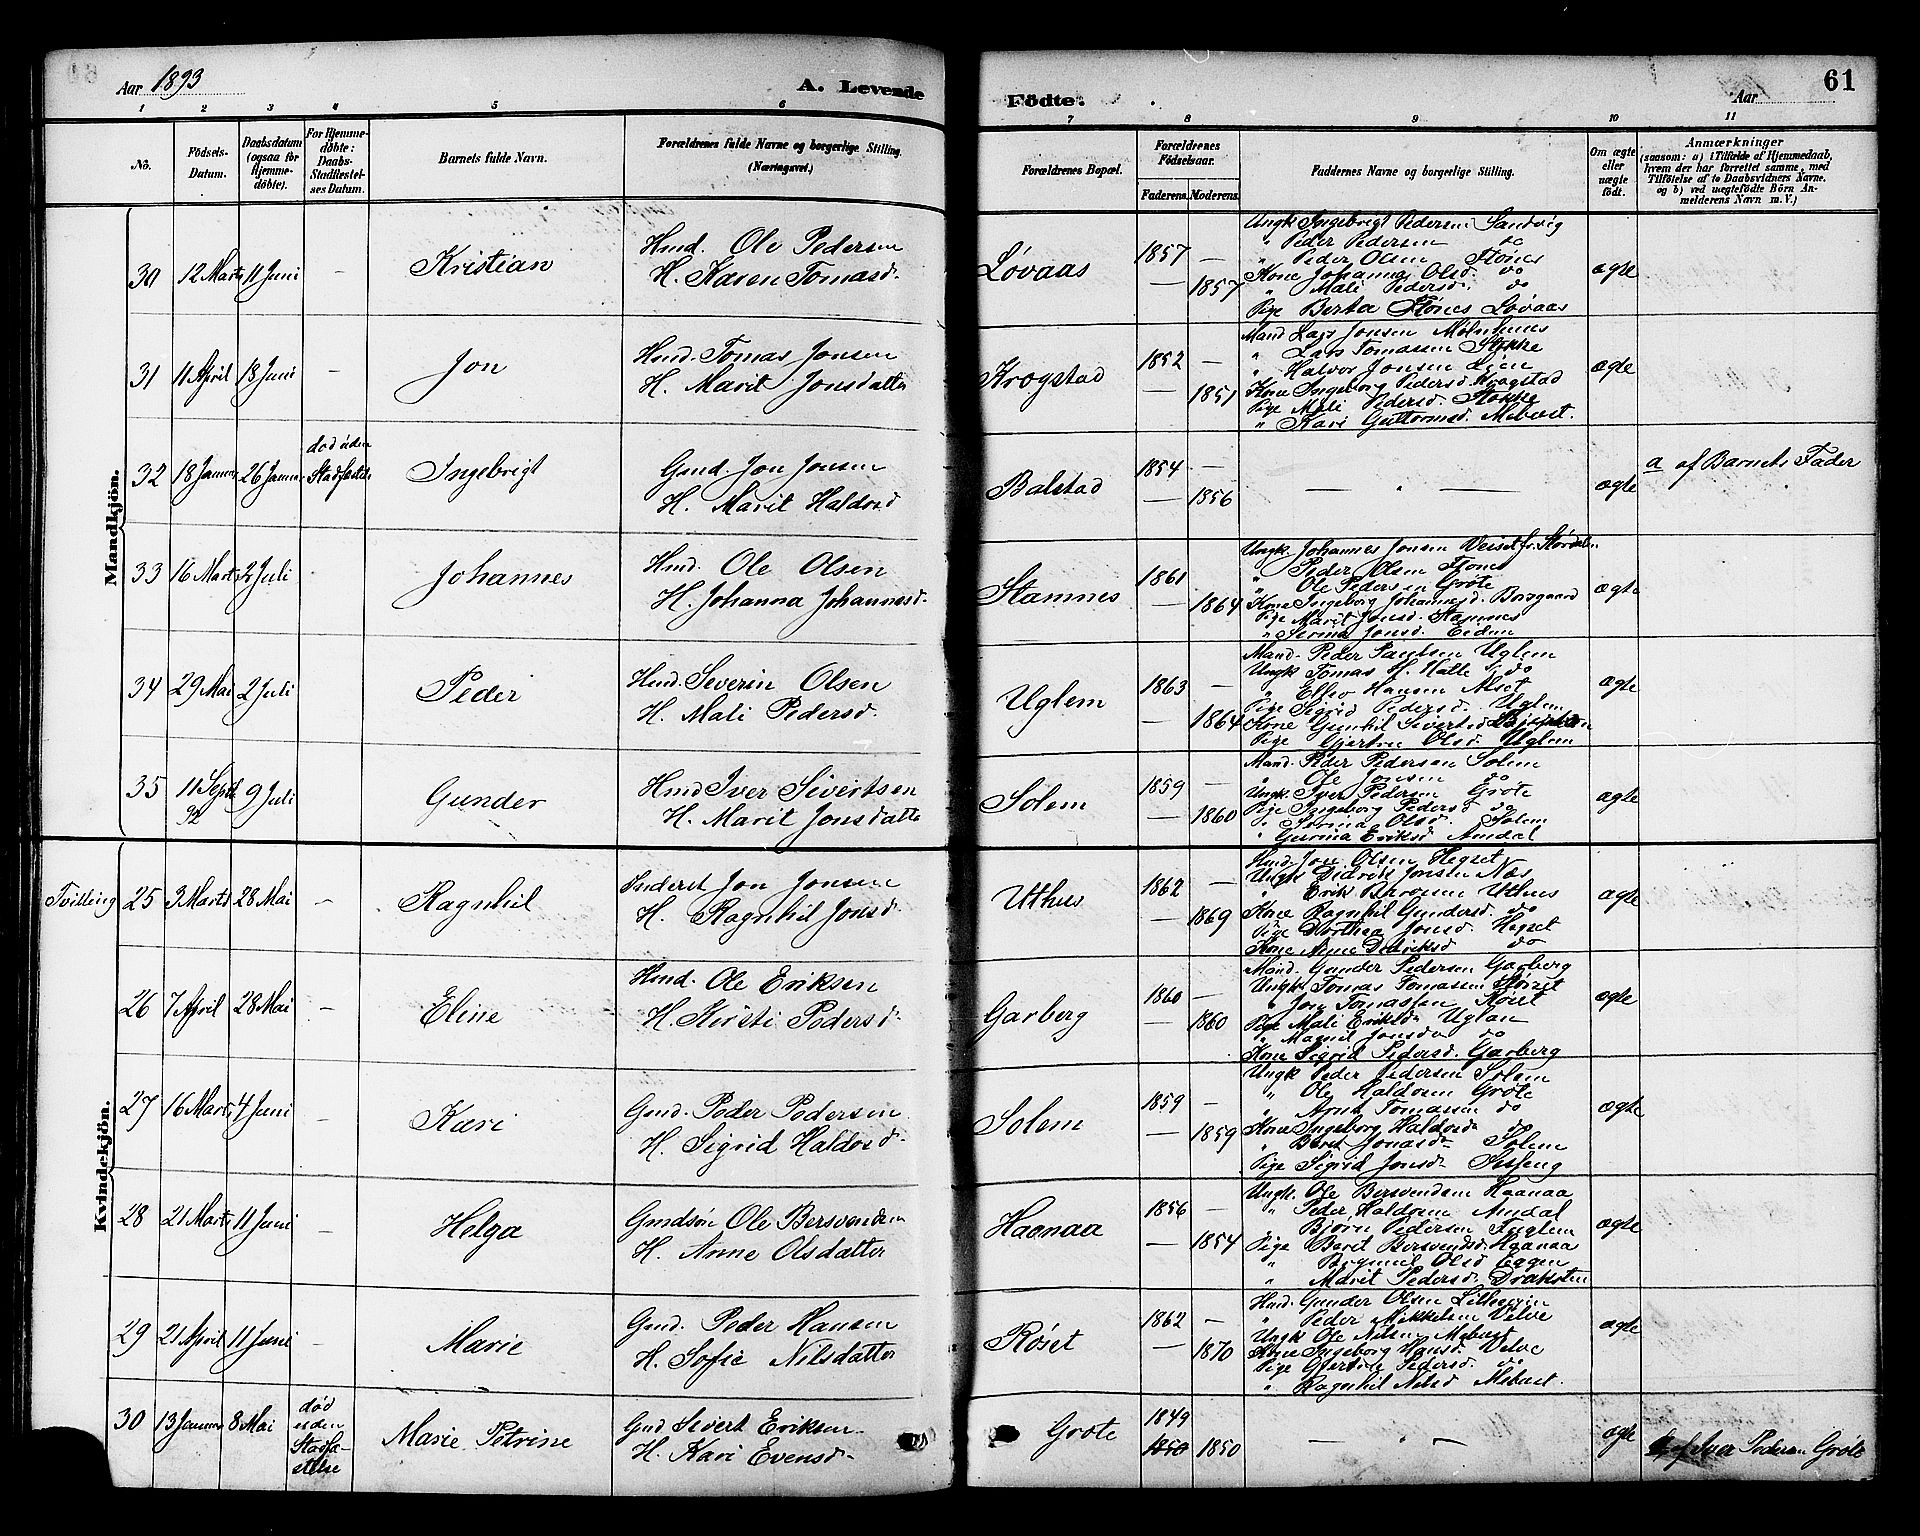 Aar 1893
A. Levende
Födte.
Aar
61
1 2 3 4 5 6 7 8 9 10 11
No.
Födsels-
Datum.
Daabsdatum
(ogsaa for
Hjemme-
döbte).
For Hjemme-
döbte:
Daabs-
Stadfæstel-
ses Datum.
Barnets fulde Navn.
Forældrenes fulde Navne og borgerlige Stilling.
(Næringsvei.)
Forældrenes Bopæl.
Forældrenes
Födselsaar.
Faderens. Moderens.
Faddernes Navne og borgerlige Stilling.
Om ægte
eller
uægte
födt.
Anmærkninger
(saasom: a) i Tilfælde af Hjemmedaab,
hvem der har forrettet samme, med
Tilföielse af to Daabsvidners Navne.
og b) ved uegtefödte Börn An-
melderens Navn m. V.)
Mandkjön.
30 12 Marts 11 Juni - Kristian
Hmd. Ole Pedersen
H. Karen Tomasd.
Løvaas
1857 -
- 1857
Ungk. Ingebrigt Pedersen Sandvig
" Peder Pedersen do
" Peder Olsen Stønes
Kone Johanna Olsd. do
" Mali Pedersd. do
Pige Berta Stønes Løvaas
ægte
31 11 April 18 Juni - Jon
Hmd. Tomas Jonsen
H. Marit Jonsdatter
Krogstad
1852 -
- 1851
Mand Lars Jonsen
" Lars Tomassen Stokke
" Halvor Jonsen
Kone Ingeborg Pedersd. Krogstad
Pige Mali Pedersd. Stokke
" Kari Guttormsd. Mebust.
ægte
32 18 Januar 26 Januar
død uden
Stadfæstelse
Ingebrigt
Gmd. Jon Jonsen
H. Marit Haldosd
Balstad
1854 -
- 1856
- " -
ægte
a af Barnets Fader
33 16 Marts 2 Juli Johannes
Hmd. Ole Olsen
H. Johanna Johannesd.
Stamnes
1861 -
- 1864
Ungk. Johannes Jonsen
" Peder Olsen Stones
" Ole Pedersen Grøte
Kone Ingeborg Johannesd. Borsgaard
Pige Marit Jonsd. Stamnes
" Jonsd. Eidem
ægte
34 29 Mai 2 Juli Peder
Hmd. Severin Olsen
H. Mali Pedersd.
Uglem
1863 -
- 1864
Mand. Peder Paulsen Uglem
Ungk Tomas do
" Ellev Hansen Alset
Pige Sigrid Pedersd. Uglem
Kone Gunhil Sivertsd
Pige Gjertru Olsd. Uglem
ægte
35 11 Sept 9 Juli Gunder
92
Hmd Iver Sivertsen
H. Marit Jonsdatter
Solem
1859 -
- 1860
Mand. Peder Pedersen Solem
" Ole Jonsen do
Ungk Iver Pedersen Grøte
Pige Ingeborg Pedersd do
" Olsd. Solem
" Guruna Eriksd Amdal
ægte
Kvindekjön.
Tvilling 25 3 Marts 28 Mai - Ragnhil
Inderst Jon Jonsen
H. Ragnhil Jonsd.
Uthus
1862 -
- 1869
Hmd. Jon Olsen Hegset
Ungk Didrik Jonsen Næs
" Erik Uthus
Kone Ragnhil Gundersd. do
Pige Dorthea Jonsd. Hegset
Kone Didriksd do
ægte
26 7 April 28 Mai - Eline
Hmd. Ole Eriksen
H. Kirsti Pedersd.
Garberg
1860 -
- 1860
Mand. Gunder Pedersen Garberg
Ungk Tomas Tomassen
" Jon Tomassen Røset
Pige Mali Eriksdr Uglan
" Magnil Jonsdr do
Kone Sigrid Pedersd. Garberg
ægte
27 16 Marts 4 Juni - Kari
Gmd. Peder Pedersen
H. Sigrid Haldosd.
Solem
1859 -
- 1859
Ungk Peder Pedersen Solem
" Ole Haldosen Grøte
" Arnt Tomassen do
Kone Ingeborg Haldosd do
" Beret Jonasdr Solem
Pige Sigrid Jonsdr
ægte
28 21 Marts 11 Juni - Helga
Gmdsøn Ole Bersvendsen
H. Anne Olsdatter
Haanaa
1856 -
- 1854
Ungk. Ole Bersvendsen Haanaa
" Peder Haldosen Amdal
" Bjørn Pedersen Fuglem
Pige Berit Bersvendsd. Haanaa
" Olsd Eggen
" Marit Pedersd. Draksten
ægte
29 21 April 11 Juni - Marie
Gmd. Peder Hansen
H. Sofie Nilsdatter
Røset
1862 -
- 1870
Hmd. Gunder Olsen
" Peder Mikkelsen Velve
Ungk Ole Nilsen Mebust
Kone Ingeborg Hansd. Velve
Pige Gjertrud Pedersd. do
" Ragnhil Nilsd Mebust.
ægte
30 13 Januar 8 Mai
død
uden
Stadfæ-
stelse
Marie Petrine
Gmd Sivert Eriksen
H. Kari Evensd.
Grøte
1849
1850 1850
- " -
ægte
af Iver Pedersen Grøte